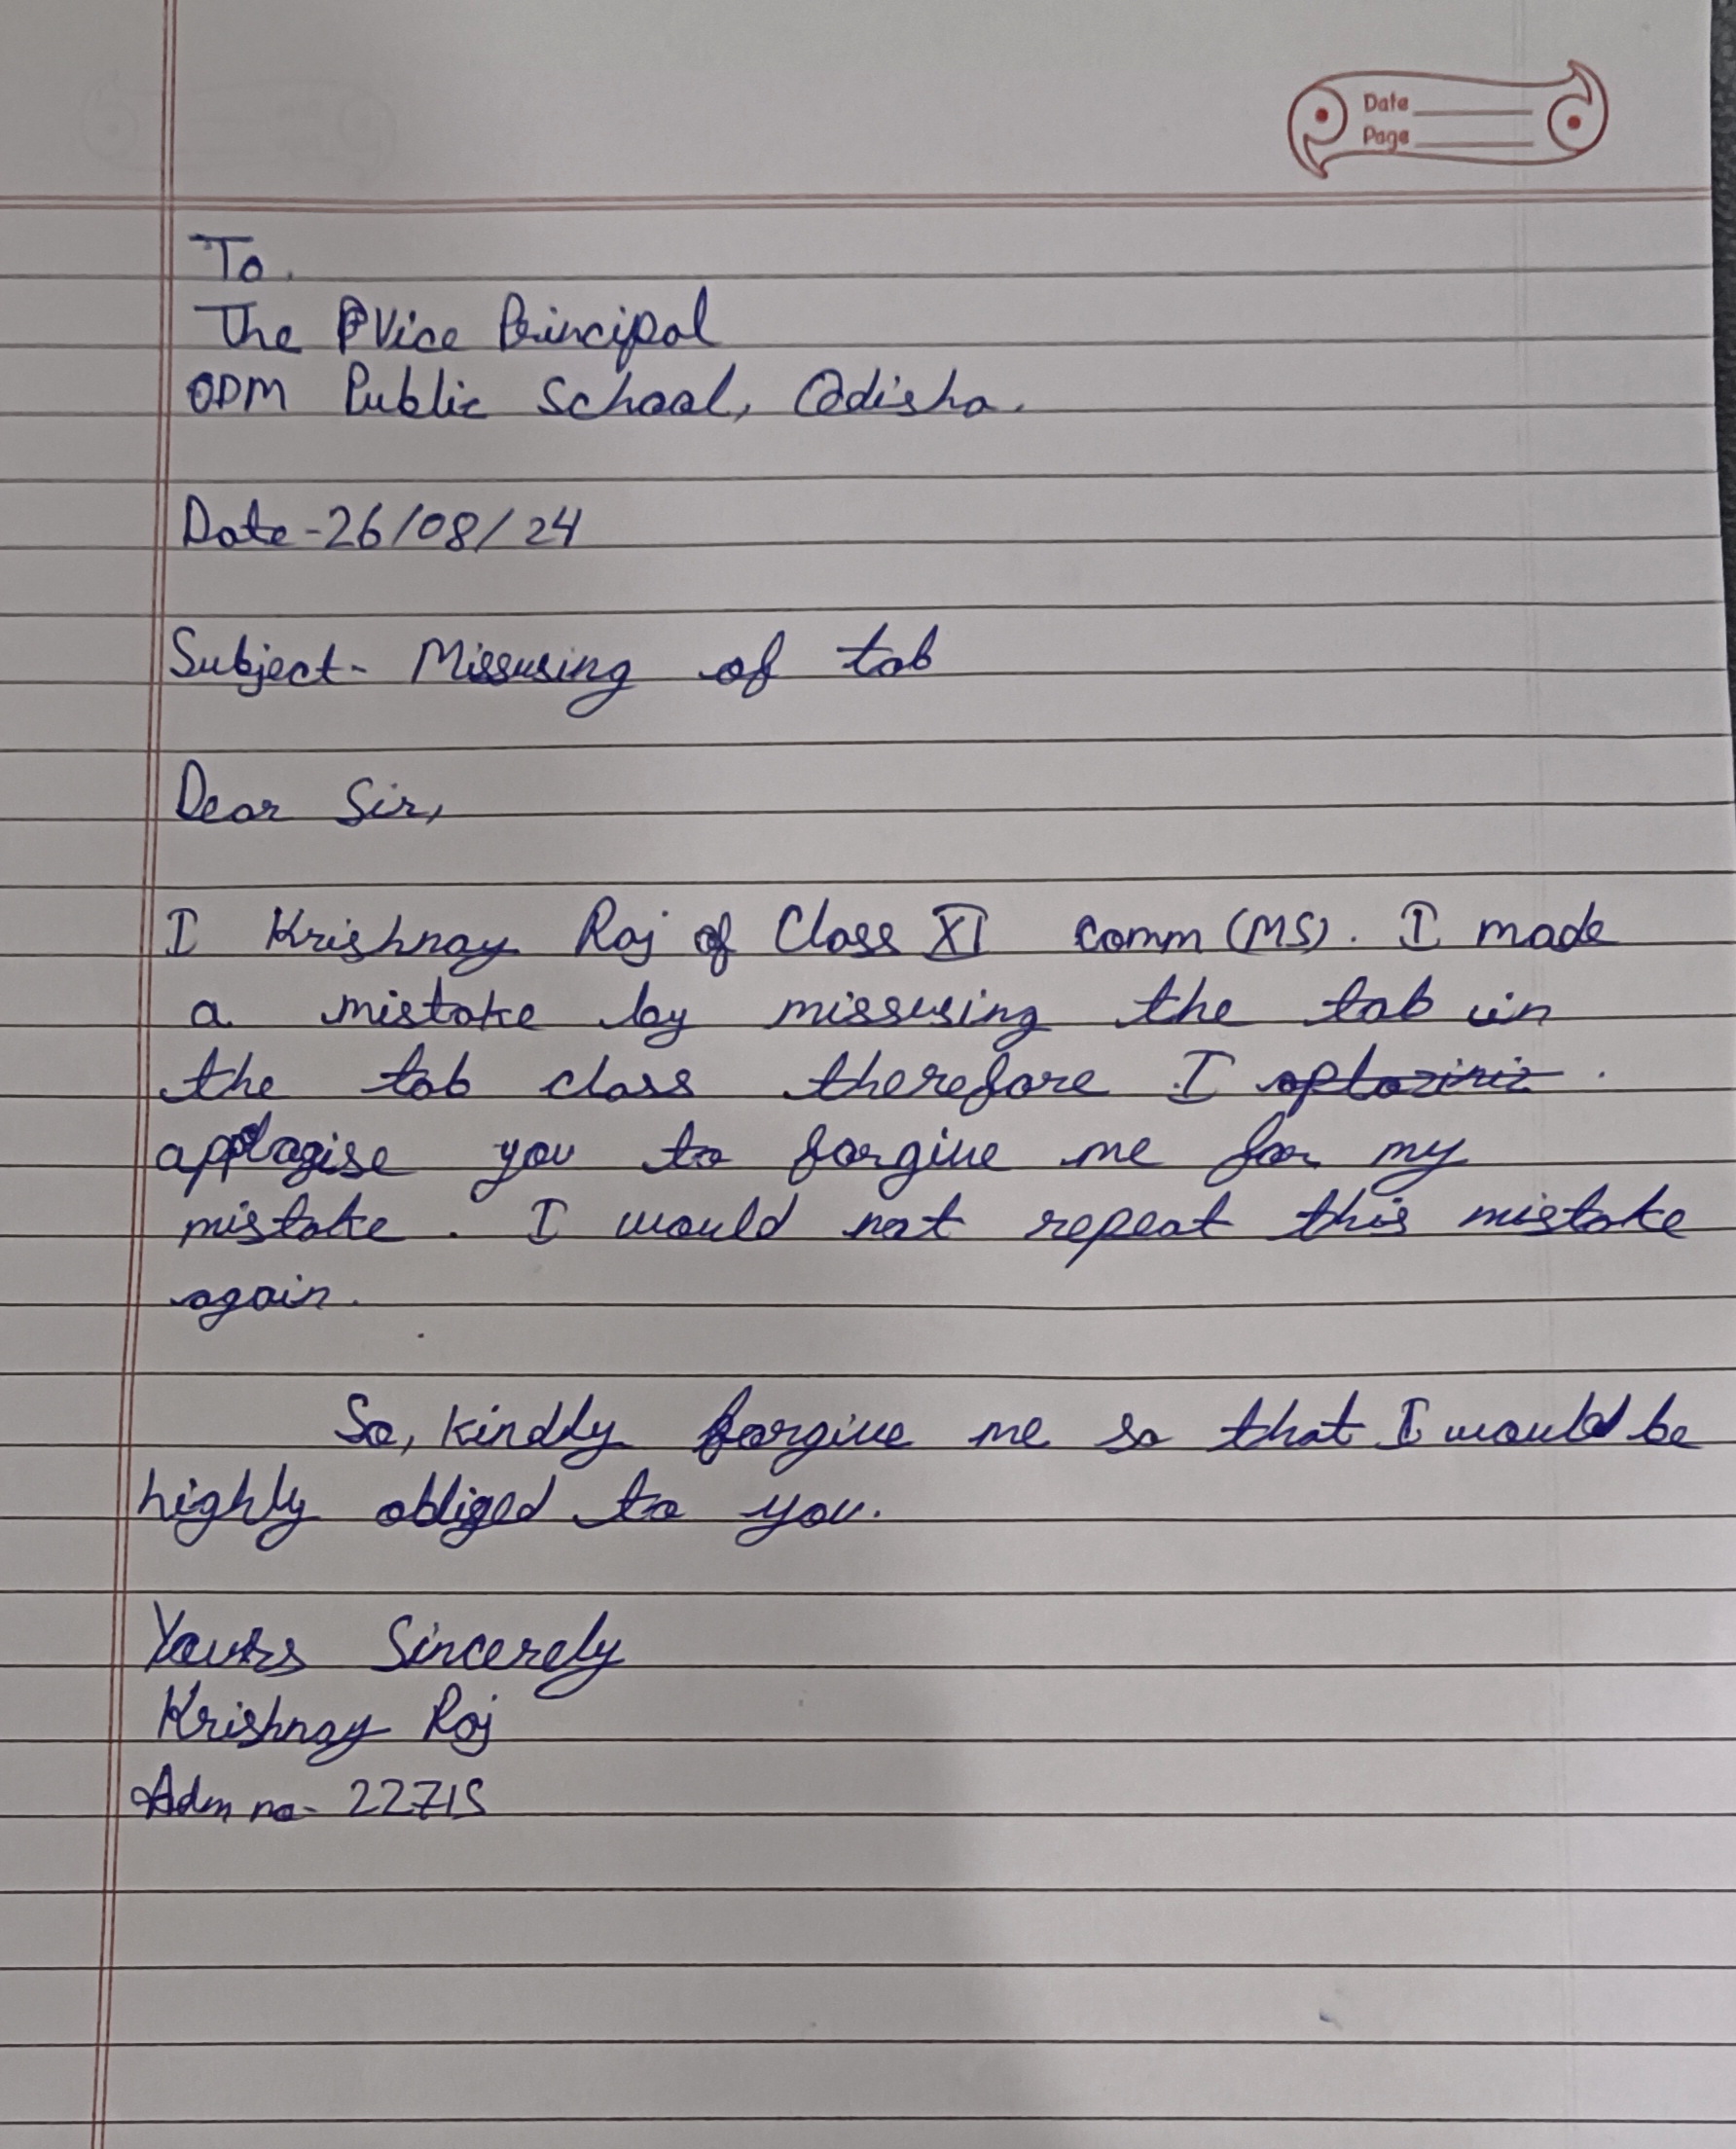 Date
Page
To,
The Vice Principal
ODM Public School, Odisha.
Date - 26/08/24
Subject - Missusing of tab
Dear Sir,
I Krishnay Raj of Class XI comm (MS). I made
a mistake by missusing the tab in
the tab class therefore I
applogise you to forgive me for my
mistake. I would not repeat this mistake
again.
So, kindly forgive me so that I would be
highly obliged to you.
Yours Sincerely
Krishnay Raj
Adm no - 22715